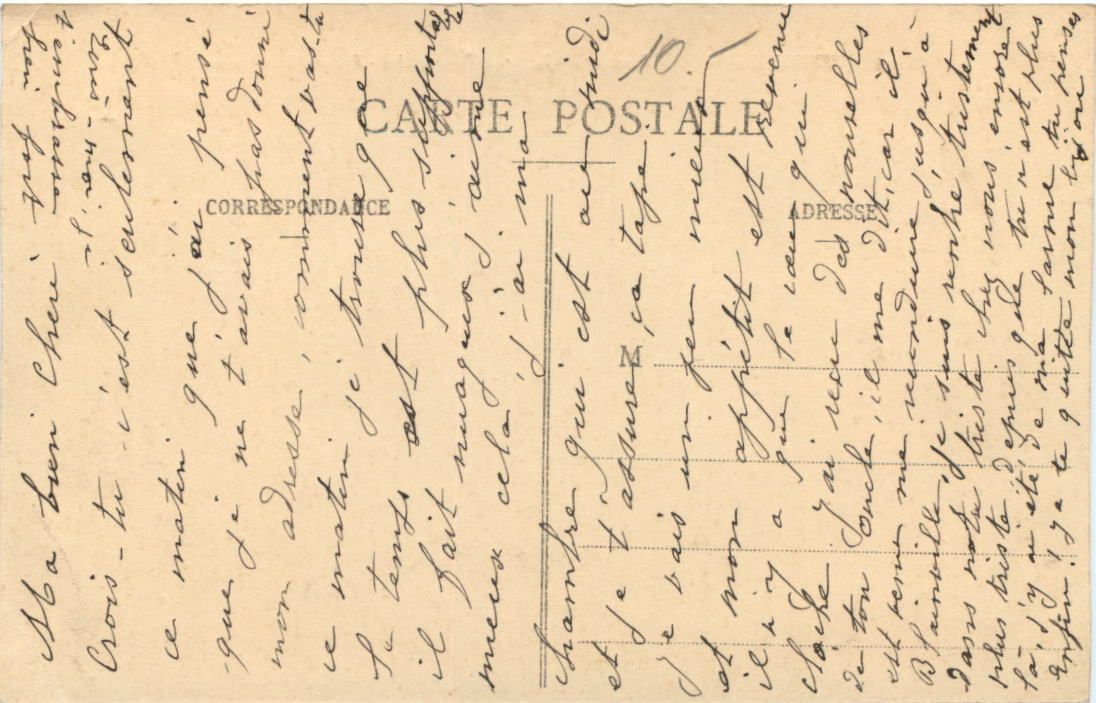 10
CARTE POSTALE
CORRESPONDANCE
ADRESSE
M
Ma bien Cherie
Crois-tu c'est seulement
ce matin que j'ai pensé
que je ne t'avais pas donné
mon adresse, comment vas-tu
ce matin je trouve que
le temps est plus supportable
il fait nuageux j'aime
mieux cela, j'ai ma
chambre qui est au midi
et je t'assure, ça tape.
je vais un peu mieux
et mon appétit est revenu
il n'y a que le cœur qui
cloche J'ai reçu des nouvelles
de ton Loulou, il me dit, car il
est venu me reconduire jusqu'à
Blainville, je suis rentré tristement
dans notre triste chez nous, encore
plus triste depuis que tu n'est plus
là, j'y ai été de ma larme tu penses
enfin! je te quitte mon bijou